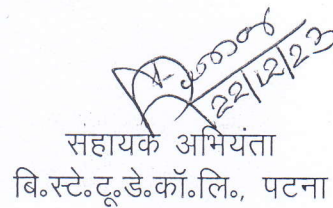 22/12/23
सहायक अभियंता
बि॰स्टे॰टू॰डे॰कॉ॰लि॰, पटना